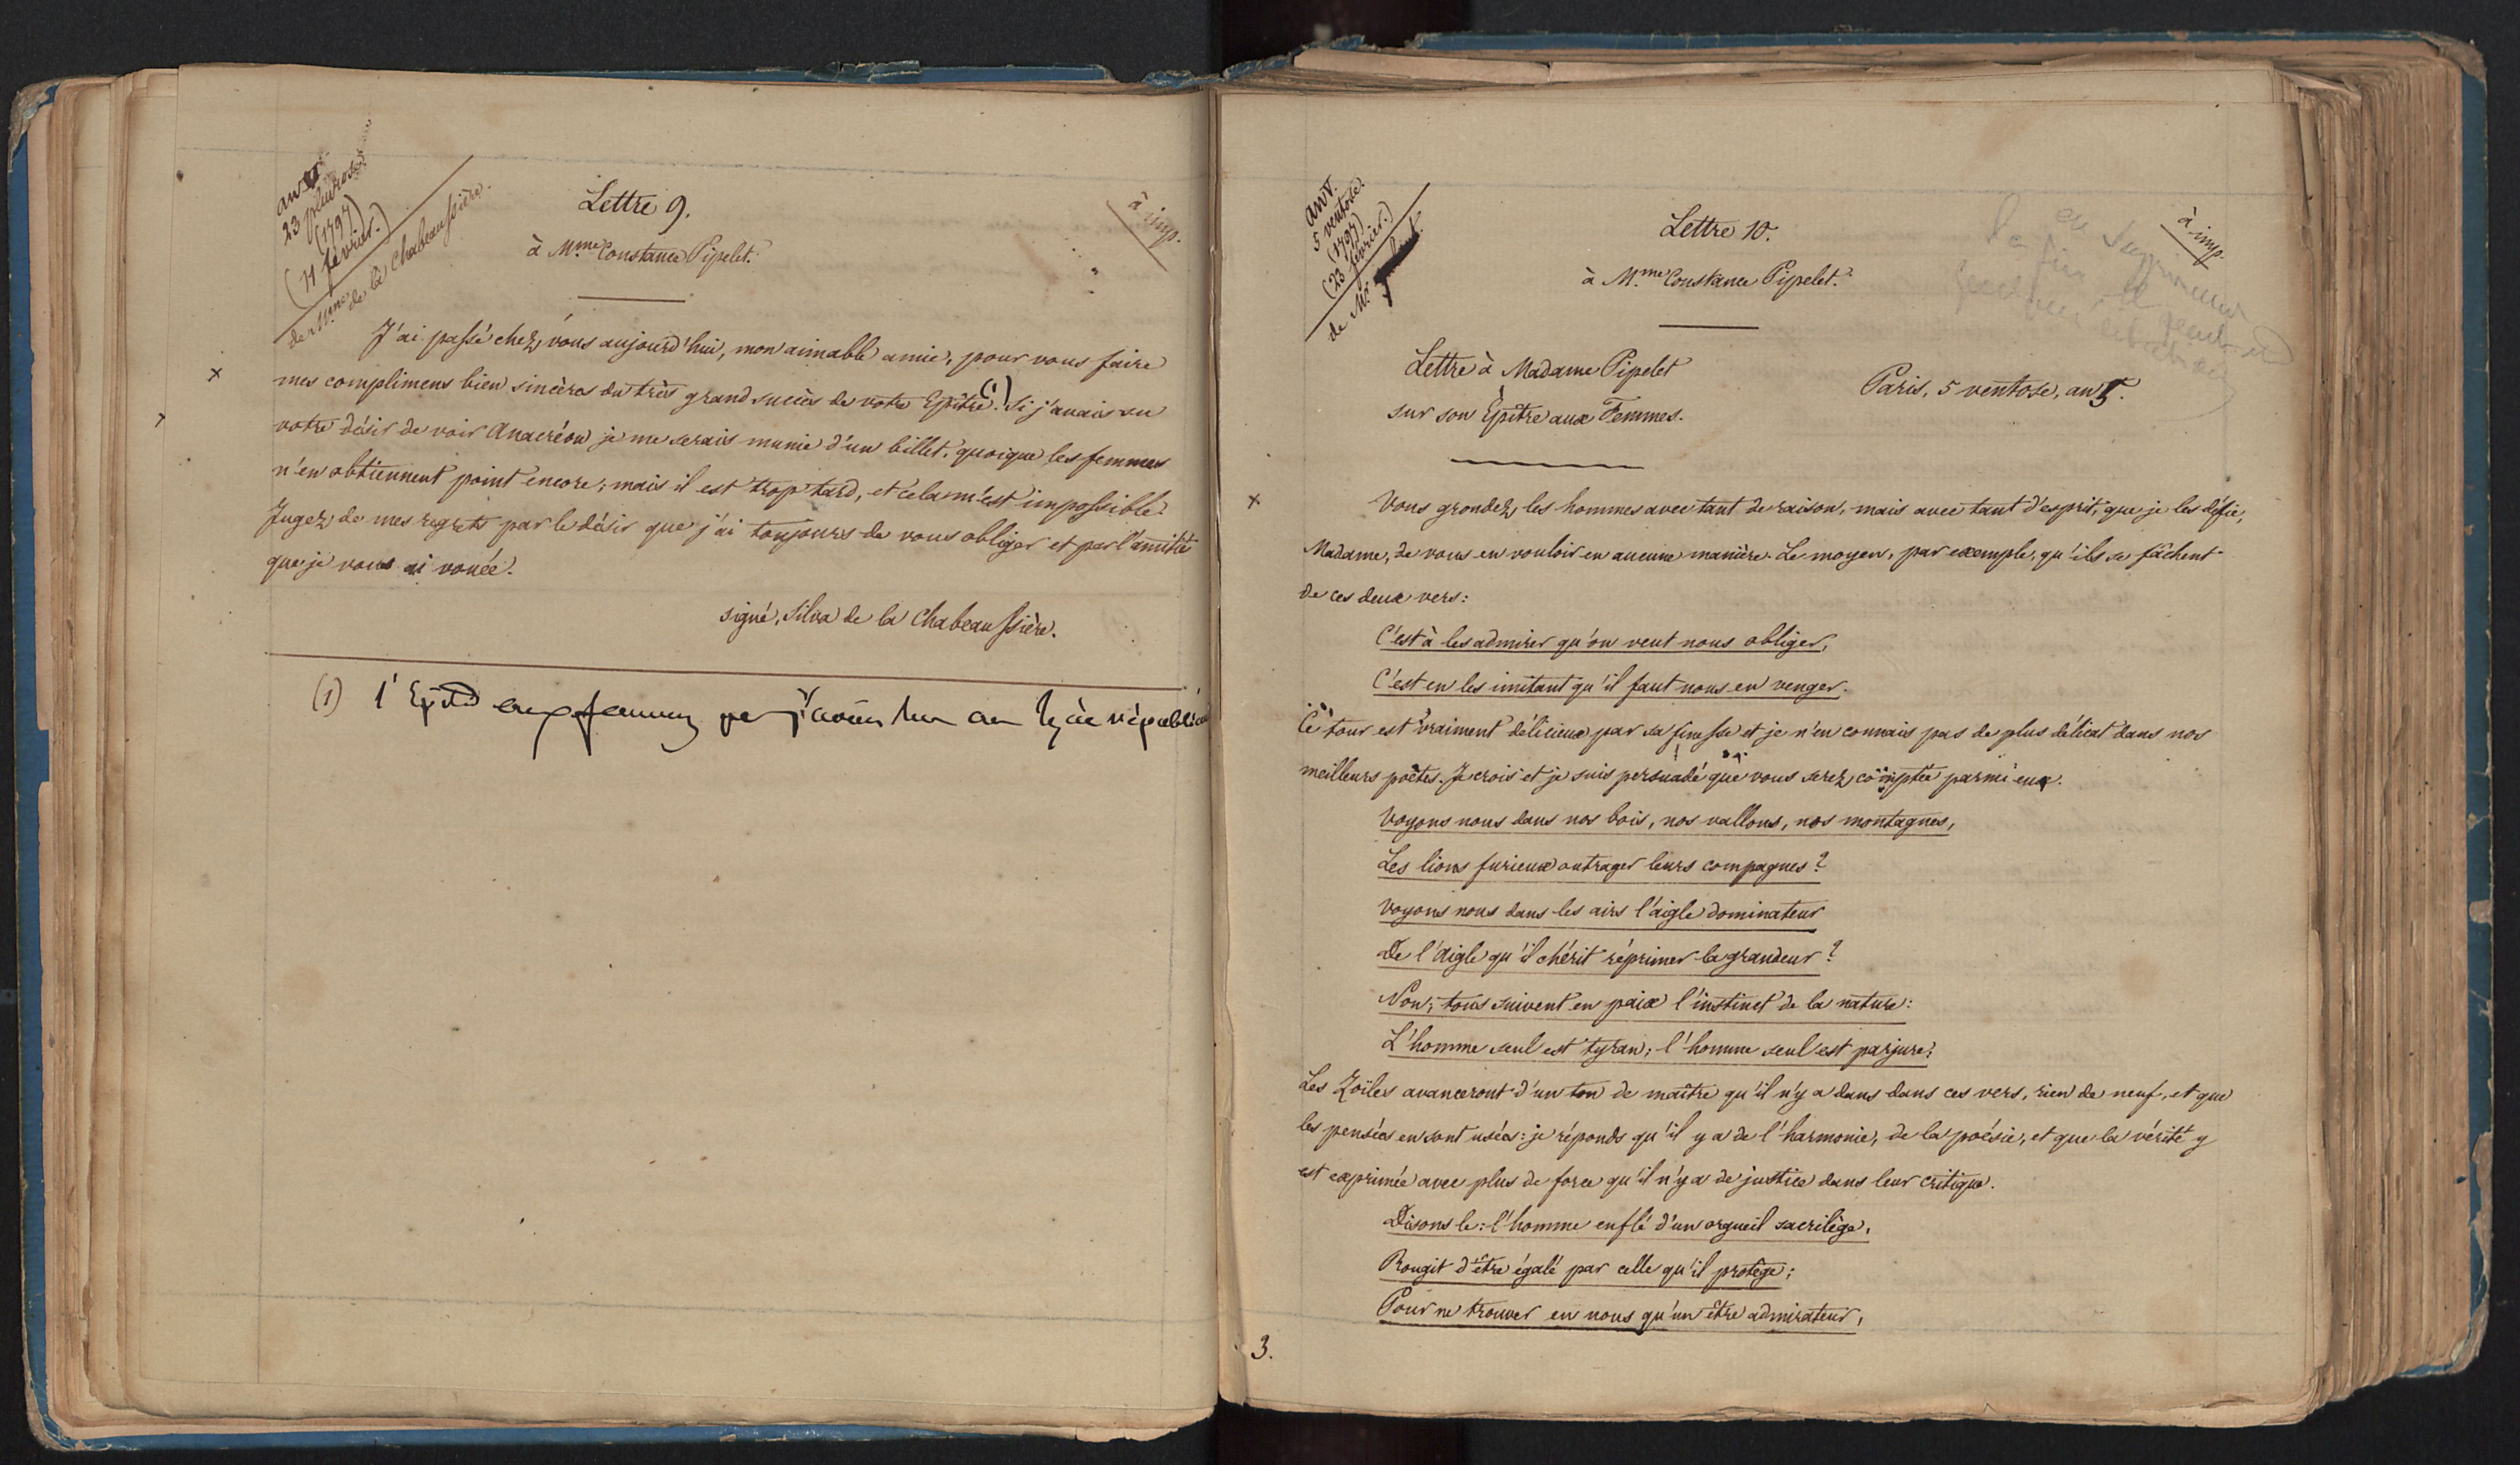 an V
23 pluviose
(1797)
(11 février.)
de Mme de la Chabeaussière.
à imp.
Lettre 9.
à M.me Constance Pipelet.
J'ai passé chez vous aujourd'hui, mon aimable amie, pour vous faire
mes complimens bien sincères du très grand succès de votre Epître (1). Si j'avais su
votre désir de voir Anacréon je me serais munie d'un billet, quoique les femmes
n'en obtiennent point encore; mais il est trop tard, et cela m'est impossible.
Jugez de mes regrets par le désir que j'ai toujours de vous obliger et par l'amitié
que je vous ai vouée.
signé, Silva de la Chabeaussière.
(1) l'Epître aux femmes que j'avais lue au lycée républicain
an V.
5 ventose.
(1797)
(23 février.)
de Mr.
à imp.
en supprimant
la fin
Lettre 10.
à M.me Constance Pipelet.
Lettre à Madame Pipelet
sur son Epître aux Femmes.
Paris, 5 ventose, an 5.
Vous grondez les hommes avec tant de raison, mais avec tant d'esprit, que je les défie,
Madame, de vous en vouloir en aucune manière. Le moyen, par exemple, qu'ils se fâchent
de ces deux vers:
C'est à les admirer qu'on veut nous obliger,
C'est en les imitant qu'il faut nous en venger.
Ce tour est vraiment délicieux par sa finesse et je n'en connais pas de plus délicat dans nos
meilleurs poètes. Je crois et je suis persuadé que vous serez comptée parmi eux.
Voyons nous dans nos bois, nos vallons, nos montagnes,
Les lions furieux outrager leurs compagnes?
Voyons nous dans les airs l'aigle dominateur
De l'aigle qu'il chérit réprimer la grandeur?
Non; tous suivent en paix l'instinct de la nature:
L'homme seul est tyran; l'homme seul est parjure;
Les Zoïles avanceront d'un ton de maître qu'il n'y a dans dans ces vers, rien de neuf, et que
les pensées en sont usées: je réponds qu'il y a de l'harmonie, de la poésie, et que la vérité y
est exprimée avec plus de force qu'il n'y a de justice dans leur critique.
Disons le: l'homme enflé d'un orgueil sacrilège,
Rougit d'être égalé par celle qu'il protège;
Pour ne trouver en nous qu'un être admirateur,
3.